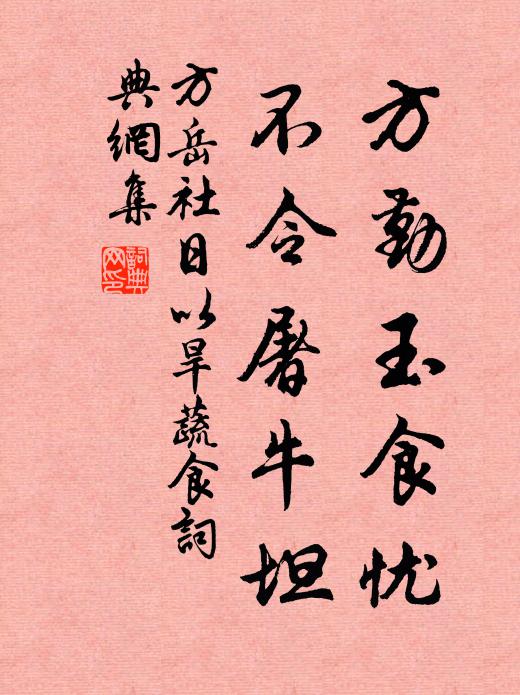 方勤玉食忧
不令屠牛坦
方岳社日以旱蔬食詞
典網集
詞典網印